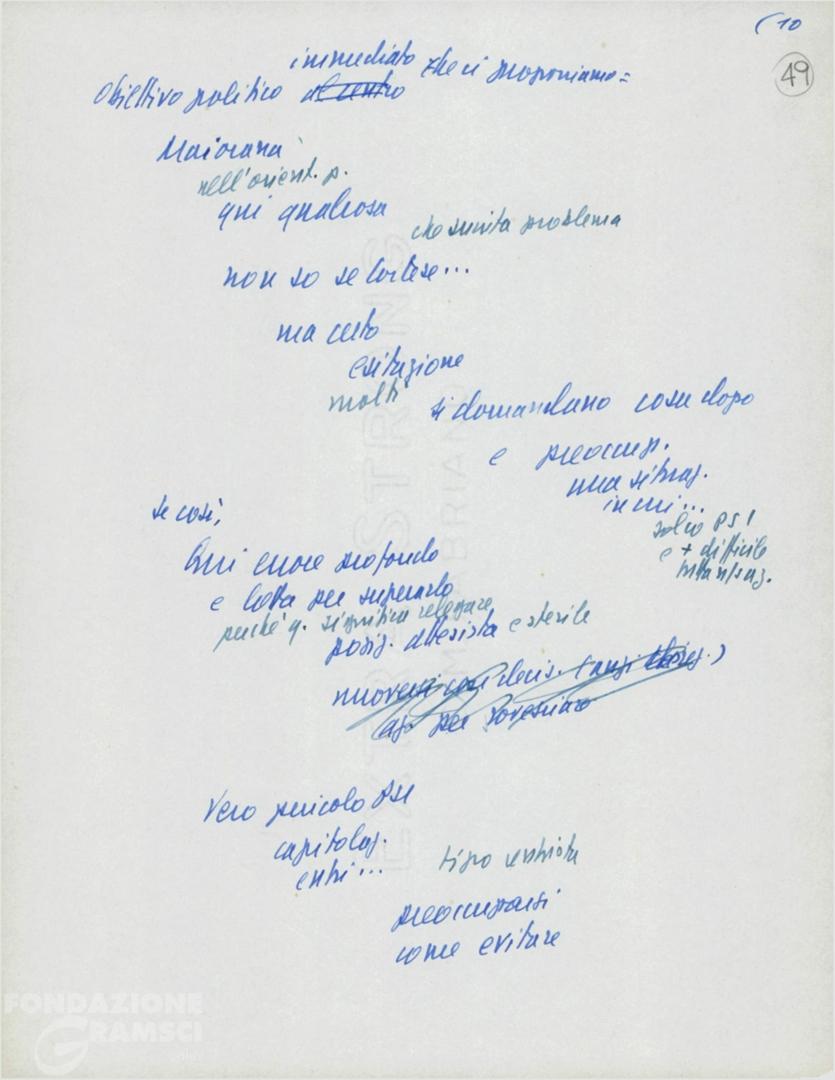 ( 10
49
immediato che ci proponiamo =
Obiettivo politico al centro
Maiorana
nell'orient. p.
qui qualcosa
che suscita problema
non so se Cortese...
ma certo
esitazione
molti
si domandano cosa dopo
e preoccup.
una situaz.
in cui...
solo PSI
e + difficile
se così,
Qui errore profondo
e lotta per superarlo
perché q. significa relegare
posiz. attesista e sterile
muoversi con decis.
agr. per rovesciare
Vero pericolo PSI
capitolaz.
entri...
preoccuparsi
come evitare
EXTRA STRONG
FABRIANO
FONDAZIONE
GRAMSCI